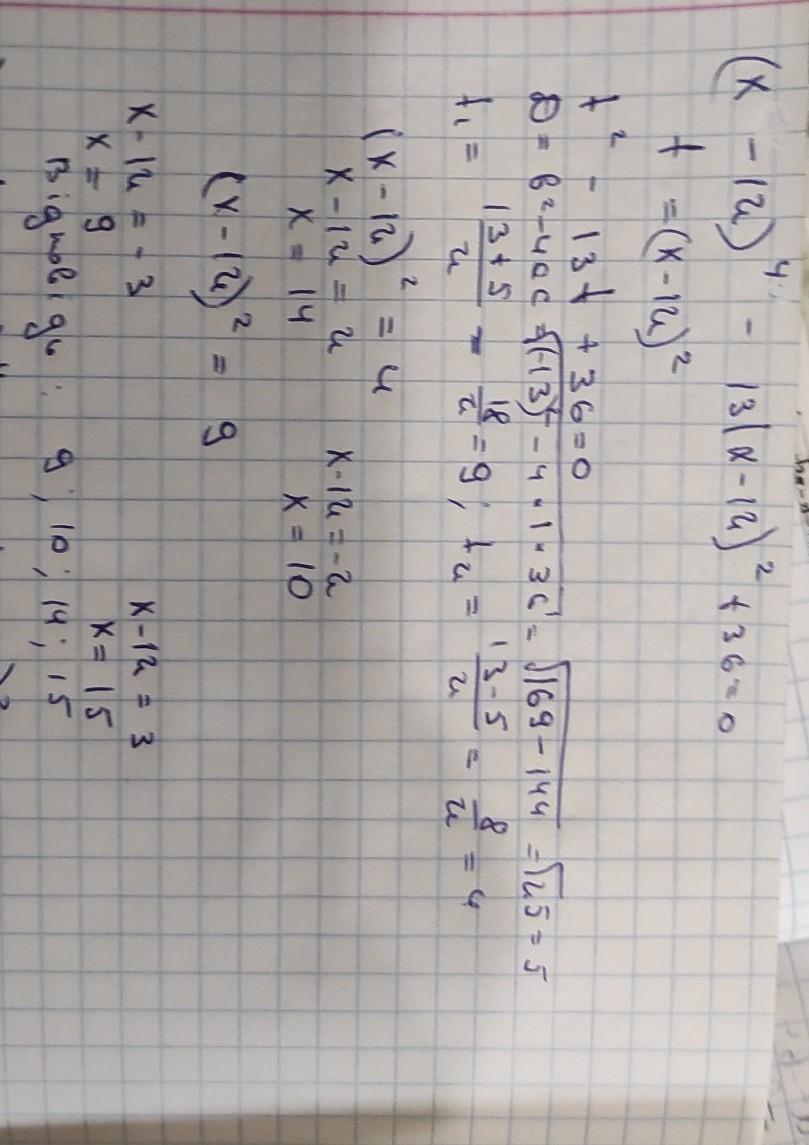 (x - 12)⁴ - 13(x - 12)² + 36 = 0
t = (x - 12)²
t² - 13t + 36 = 0
D = b² - 4ac = √(-13)² - 4 · 1 · 36 = √169 - 144 = √25 = 5
t₁ = 13 + 5 / 2 = 18 / 2 = 9; t₂ = 13 - 5 / 2 = 8 / 2 = 4
(x - 12)² = 4
x - 12 = 2 x - 12 = -2
x = 14 x = 10
(x - 12)² = 9
x - 12 = -3 x - 12 = 3
x = 9 x = 15
Відповідь: 9; 10; 14; 15